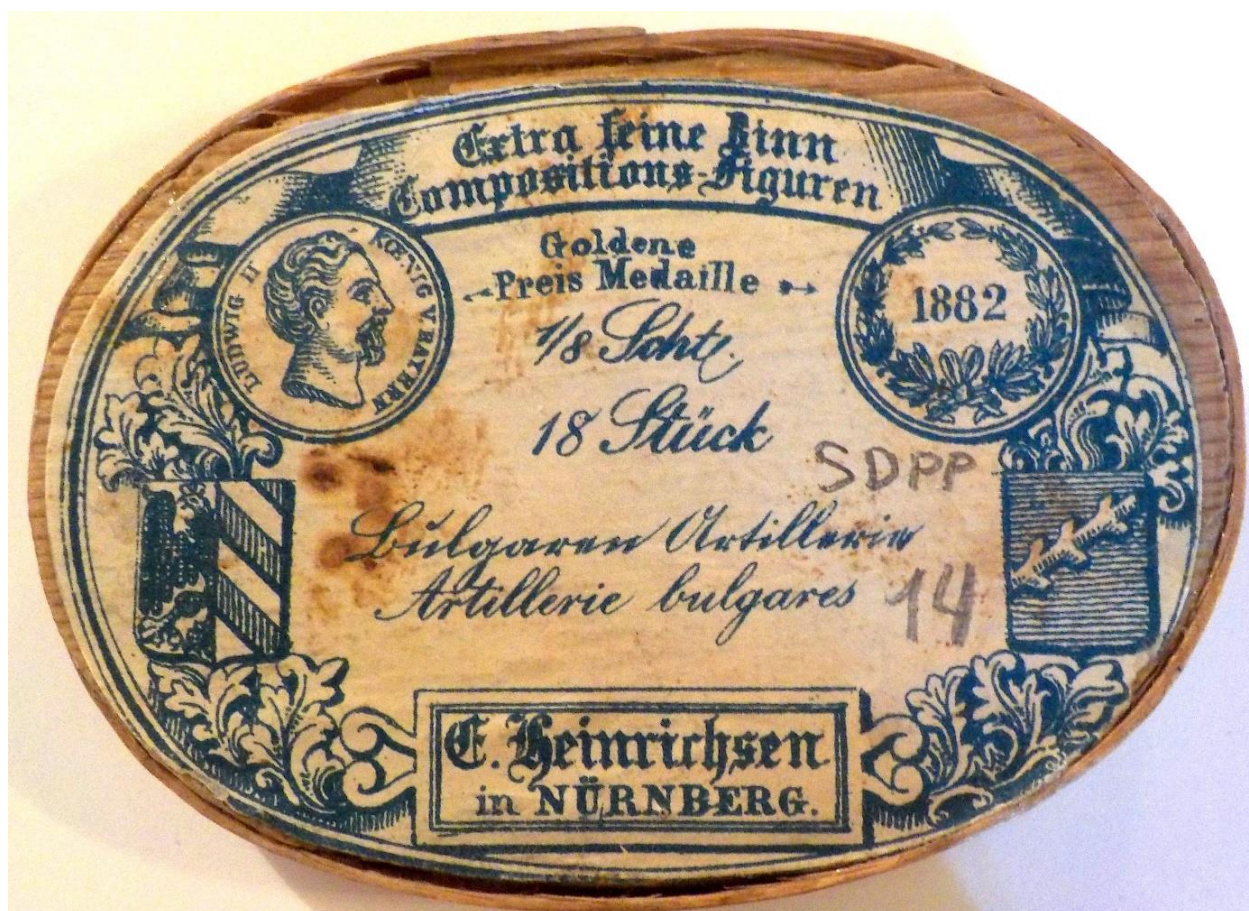 Extra feine Zinn
Compositions-Figuren
LUDWIG II KOENIG V. BAYERN
Goldene
Preis Medaille
1882
1/8 Schtl.
18 Stück
SDPP
Bulgaren Artillerie
Artillerie bulgares
14
E. Heinrichsen
in NÜRNBERG.